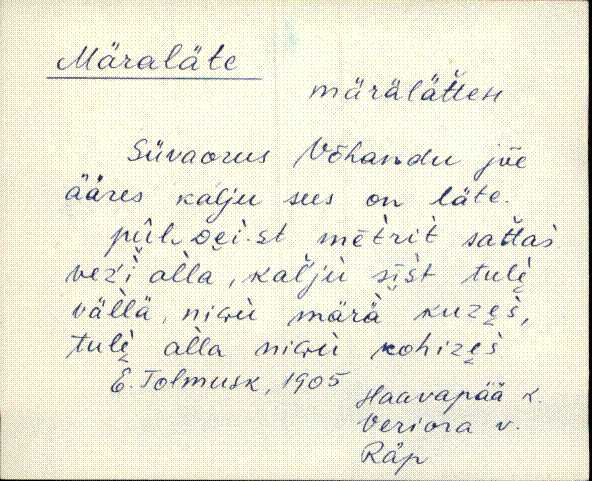 Märaläte
märäläťťeн
Süvaorus Võhandu jõe
ääres kalju sees on läte.
pū̀l
mētrit saťťas
veźi alla, kaľju sīst tulè̮
vällä, niɢù märä kuzè̮s,
tulè̮ alla niɢù kohizè̮s
E. Tolmusk, 1905
Haavapää k.
Veriora v.
Räp